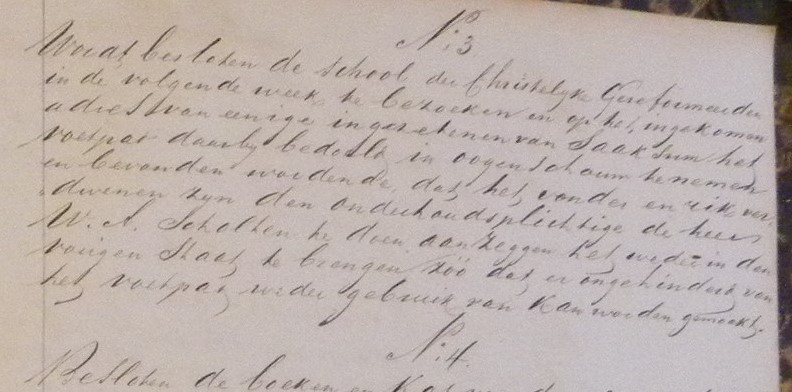 N:3
Wordt besloten de school der Christelyke Gereformeerden
in de volgende week te bezoeken en op het ingekomen
adres van eenige ingezetenen van Saaksum het
voetpad daarby bedoeld in oogenschouw te nemen
en bevonden wordende, dat het vonder en rik ver-
dwenen zyn den onderhoudsplichtige de heer
W. A. Scholten te doen aanzeggen het weder in den
vorigen staat te brengen zóó dat er ongehinderd van
het voetpad weder gebruik van kan worden gemaakt.
N:4.
Besloten de boeken en